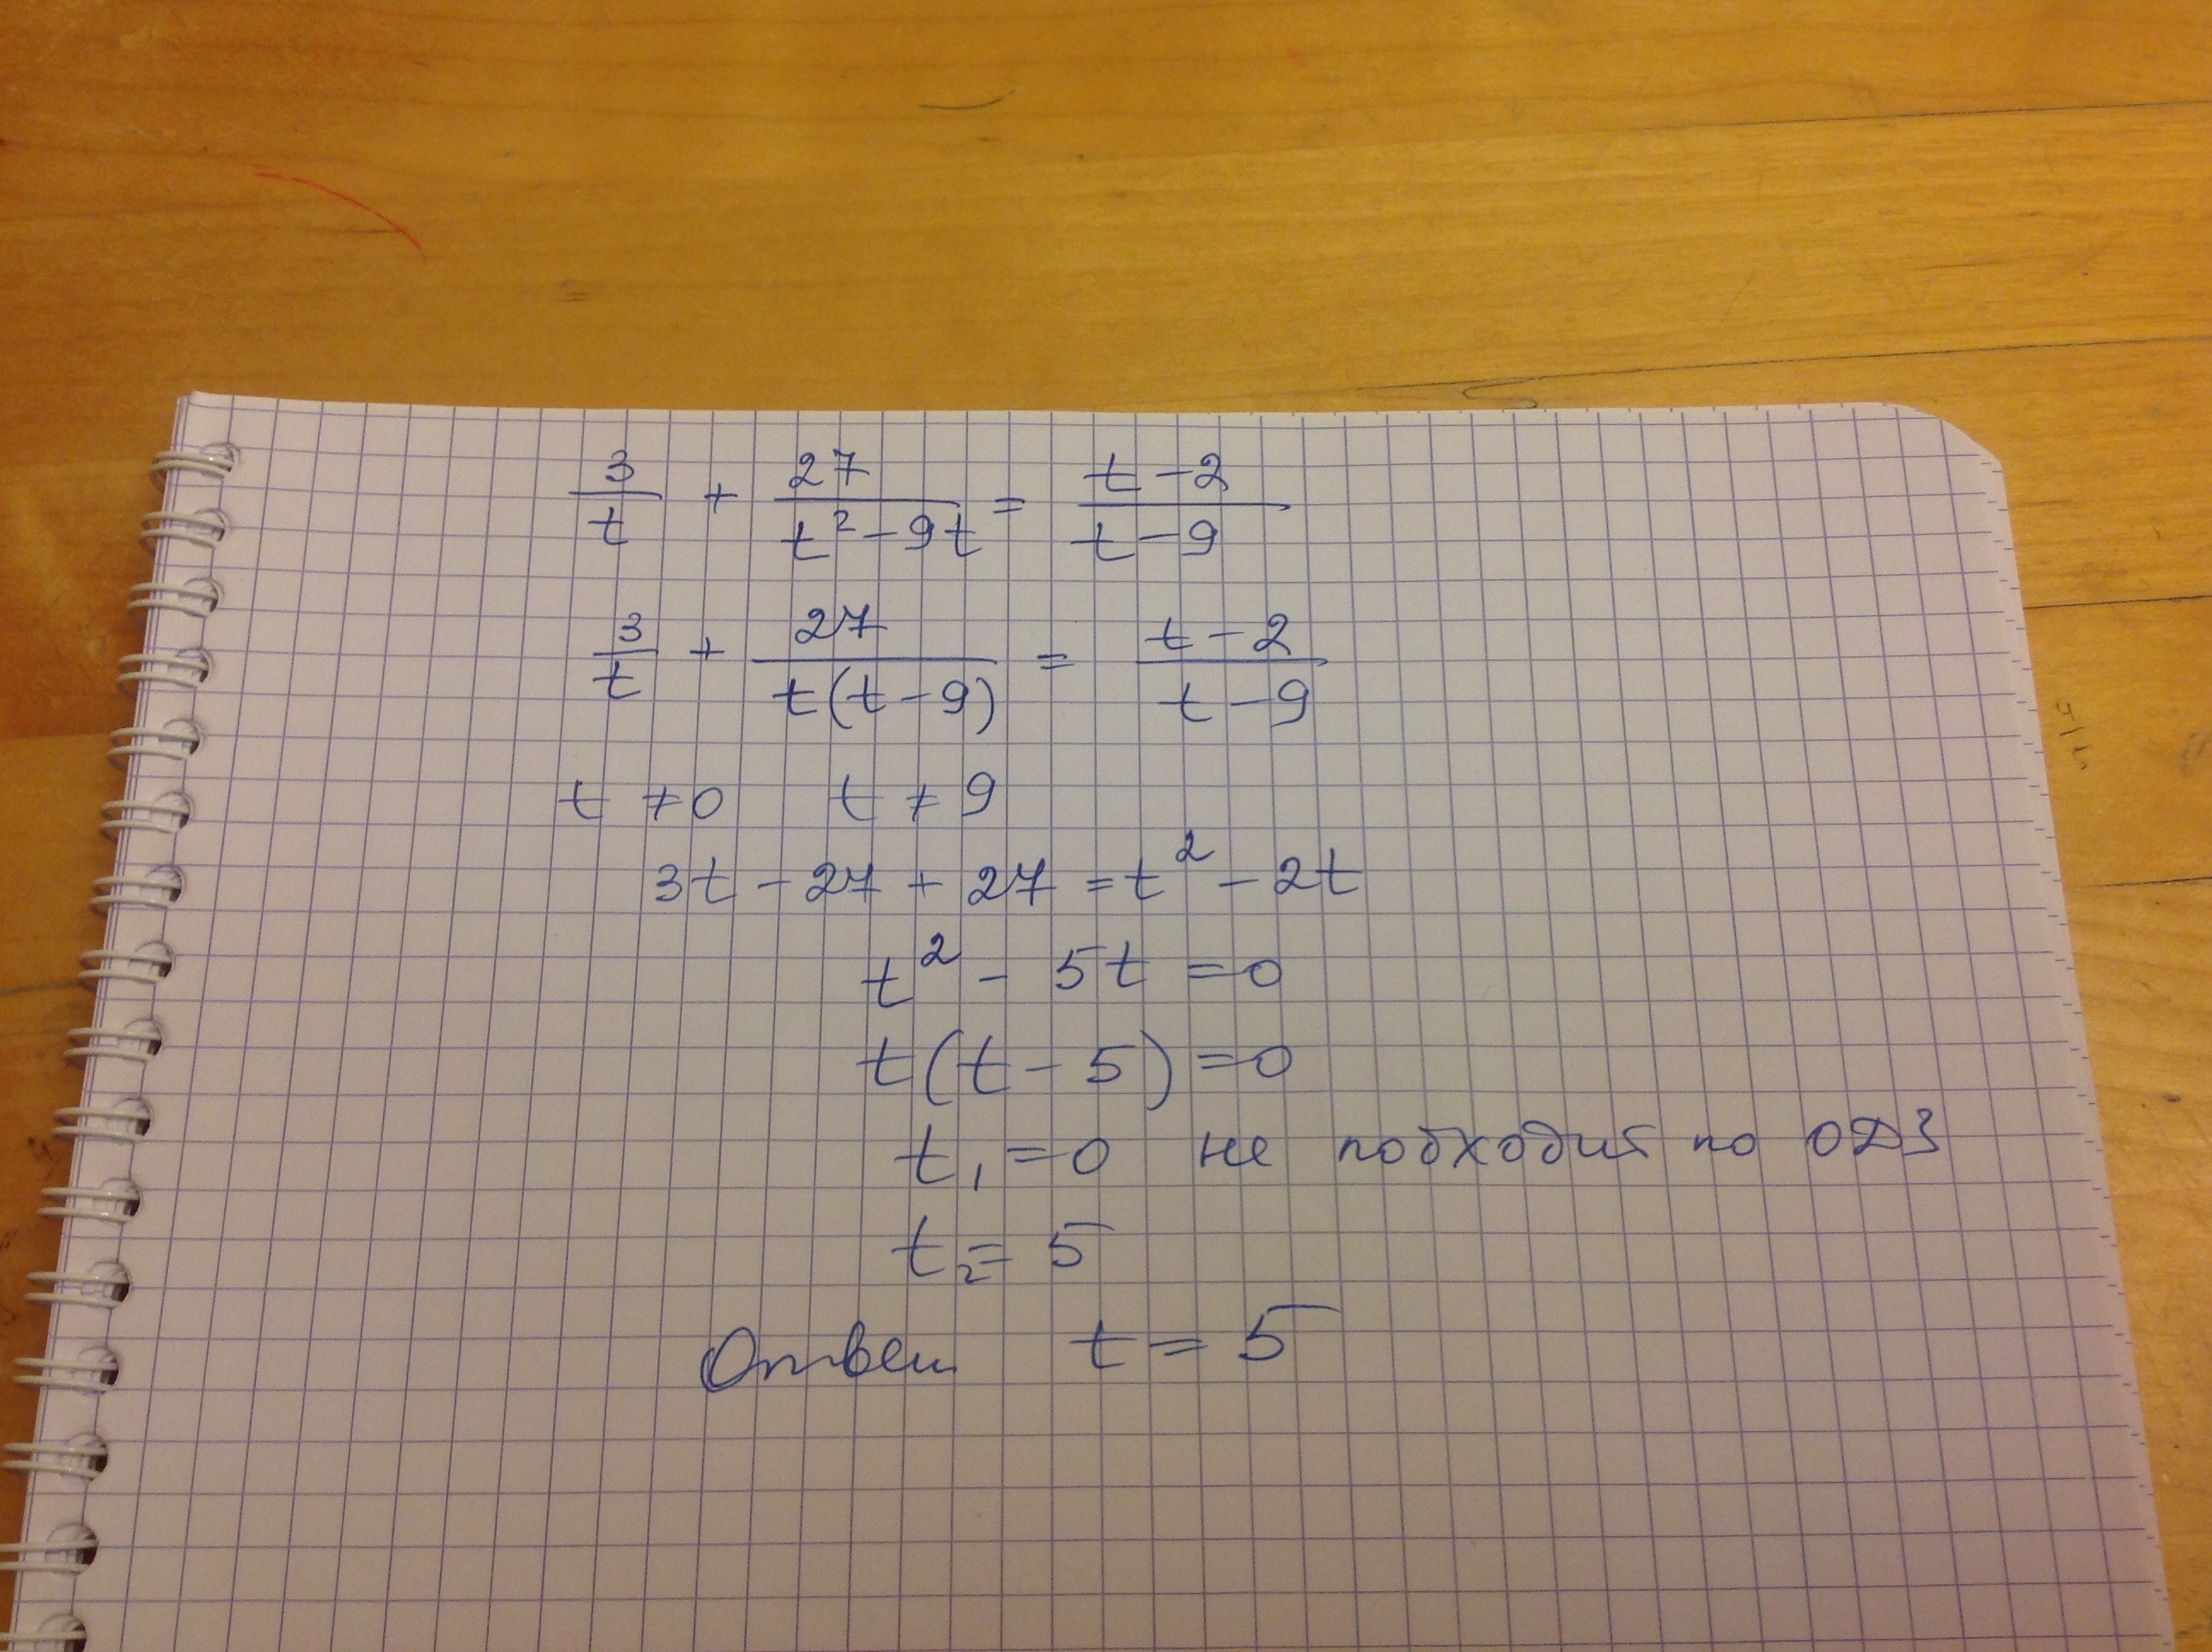 3/t + 27/(t² - 9t) = (t - 2)/(t - 9)
3/t + 27/(t(t - 9)) = (t - 2)/(t - 9)
t ≠ 0 t ≠ 9
3t - 27 + 27 = t² - 2t
t² - 5t = 0
t(t - 5) = 0
t₁ = 0 не подходит по ОДЗ
t₂ = 5
Ответ t = 5